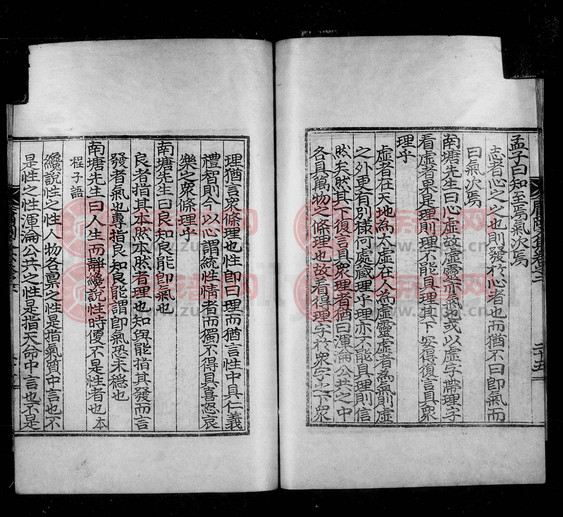 孟子曰知至焉氣次焉
志者心之之也則發於心者也而猶不曰即氣而
曰氣次焉
南塘先生曰心虛故虛靈亦氣也或以虛字帶理字
看虛者果是理則理不能具理其下安得復言具衆
理乎
虛者在天地為太虛在人為虛靈虛者為氣則虛
之外更有別樣何處藏理乎理亦不能具理則信
然矣然其下復言具衆理者猶曰渾淪公共之中
各具萬物之條理也故看得理字於衆字上下衆
理猶言衆條理也性即曰理而猶言性中具仁義
禮智則今以心謂統性情者而獨不得具喜怒哀
樂之衆條理乎
南塘先生曰良知良能即氣也
良者指其本然本然者理也知與能指其發而言
發者氣也專指良知良能謂即氣恐未穩也
南塘先生曰人生而靜纔說性時便不是性者也本
程子語
纔說性之性人物各稟之性是指氣質中言也不
是性之性渾淪公共之性是指天命中言也不是
二十五